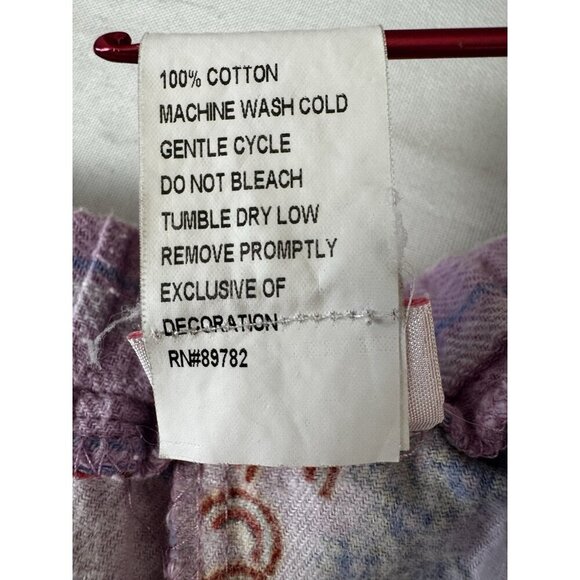 100% COTTON
MACHINE WASH COLD
GENTLE CYCLE
DO NOT BLEACH
TUMBLE DRY LOW
REMOVE PROMPTLY
EXCLUSIVE OF
DECORATION
RN#89782